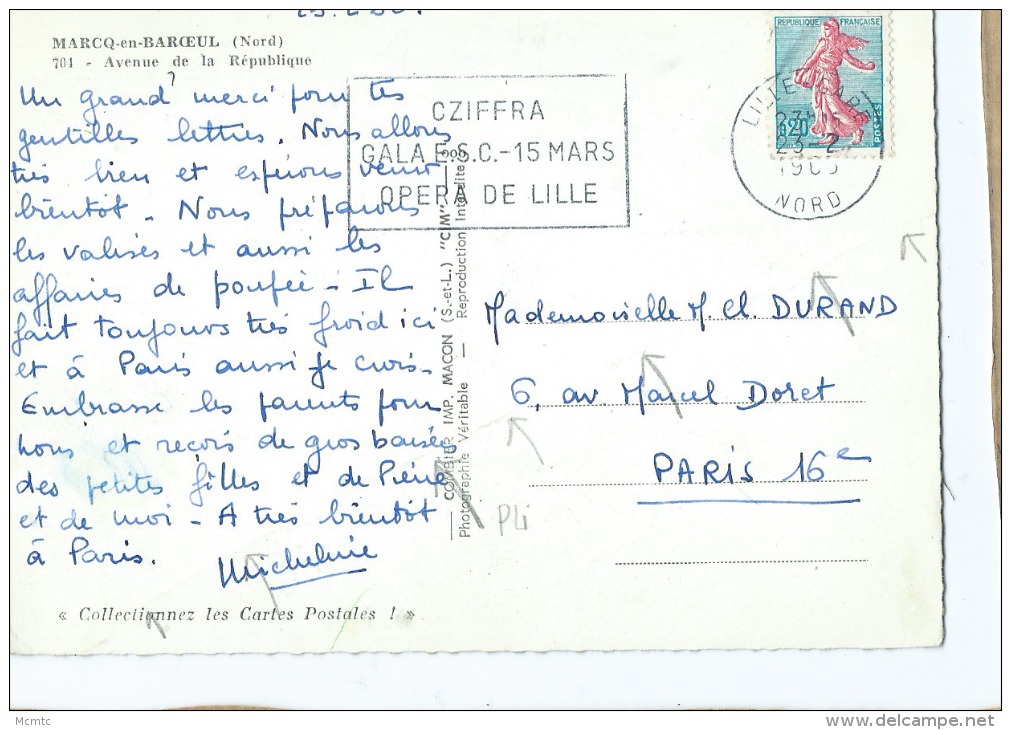 MARCQ-en-BARŒUL (Nord)
701 - Avenue de la République
Un grand merci pour tes
gentilles lettres. Nous allons
très bien et espérons venir
bientôt - Nous préparons
les valises et aussi les
affaires de poupée - Il
fait toujours très froid ici
et à Paris aussi je crois -
Embrasse les parents pour
nous et reçois de gros baisers
des petites filles et de Pierre
et de moi - A très bientôt
à Paris.
Micheline
« Collectionnez les Cartes Postales ! »
COMBIER IMP. MACON (S.-et-L.) "CIM"
Photographie Véritable — Reproduction Interdite
CZIFFRA
GALA E.S.C.-15 MARS
OPERA DE LILLE
REPUBLIQUE FRANÇAISE
0,20
POSTES
LILLE GARE
23-2
NORD
Mademoiselle M. Cl. DURAND
6, av. Marcel Doret
PARIS 16e
PLi
Mcmtc
delcampe.net